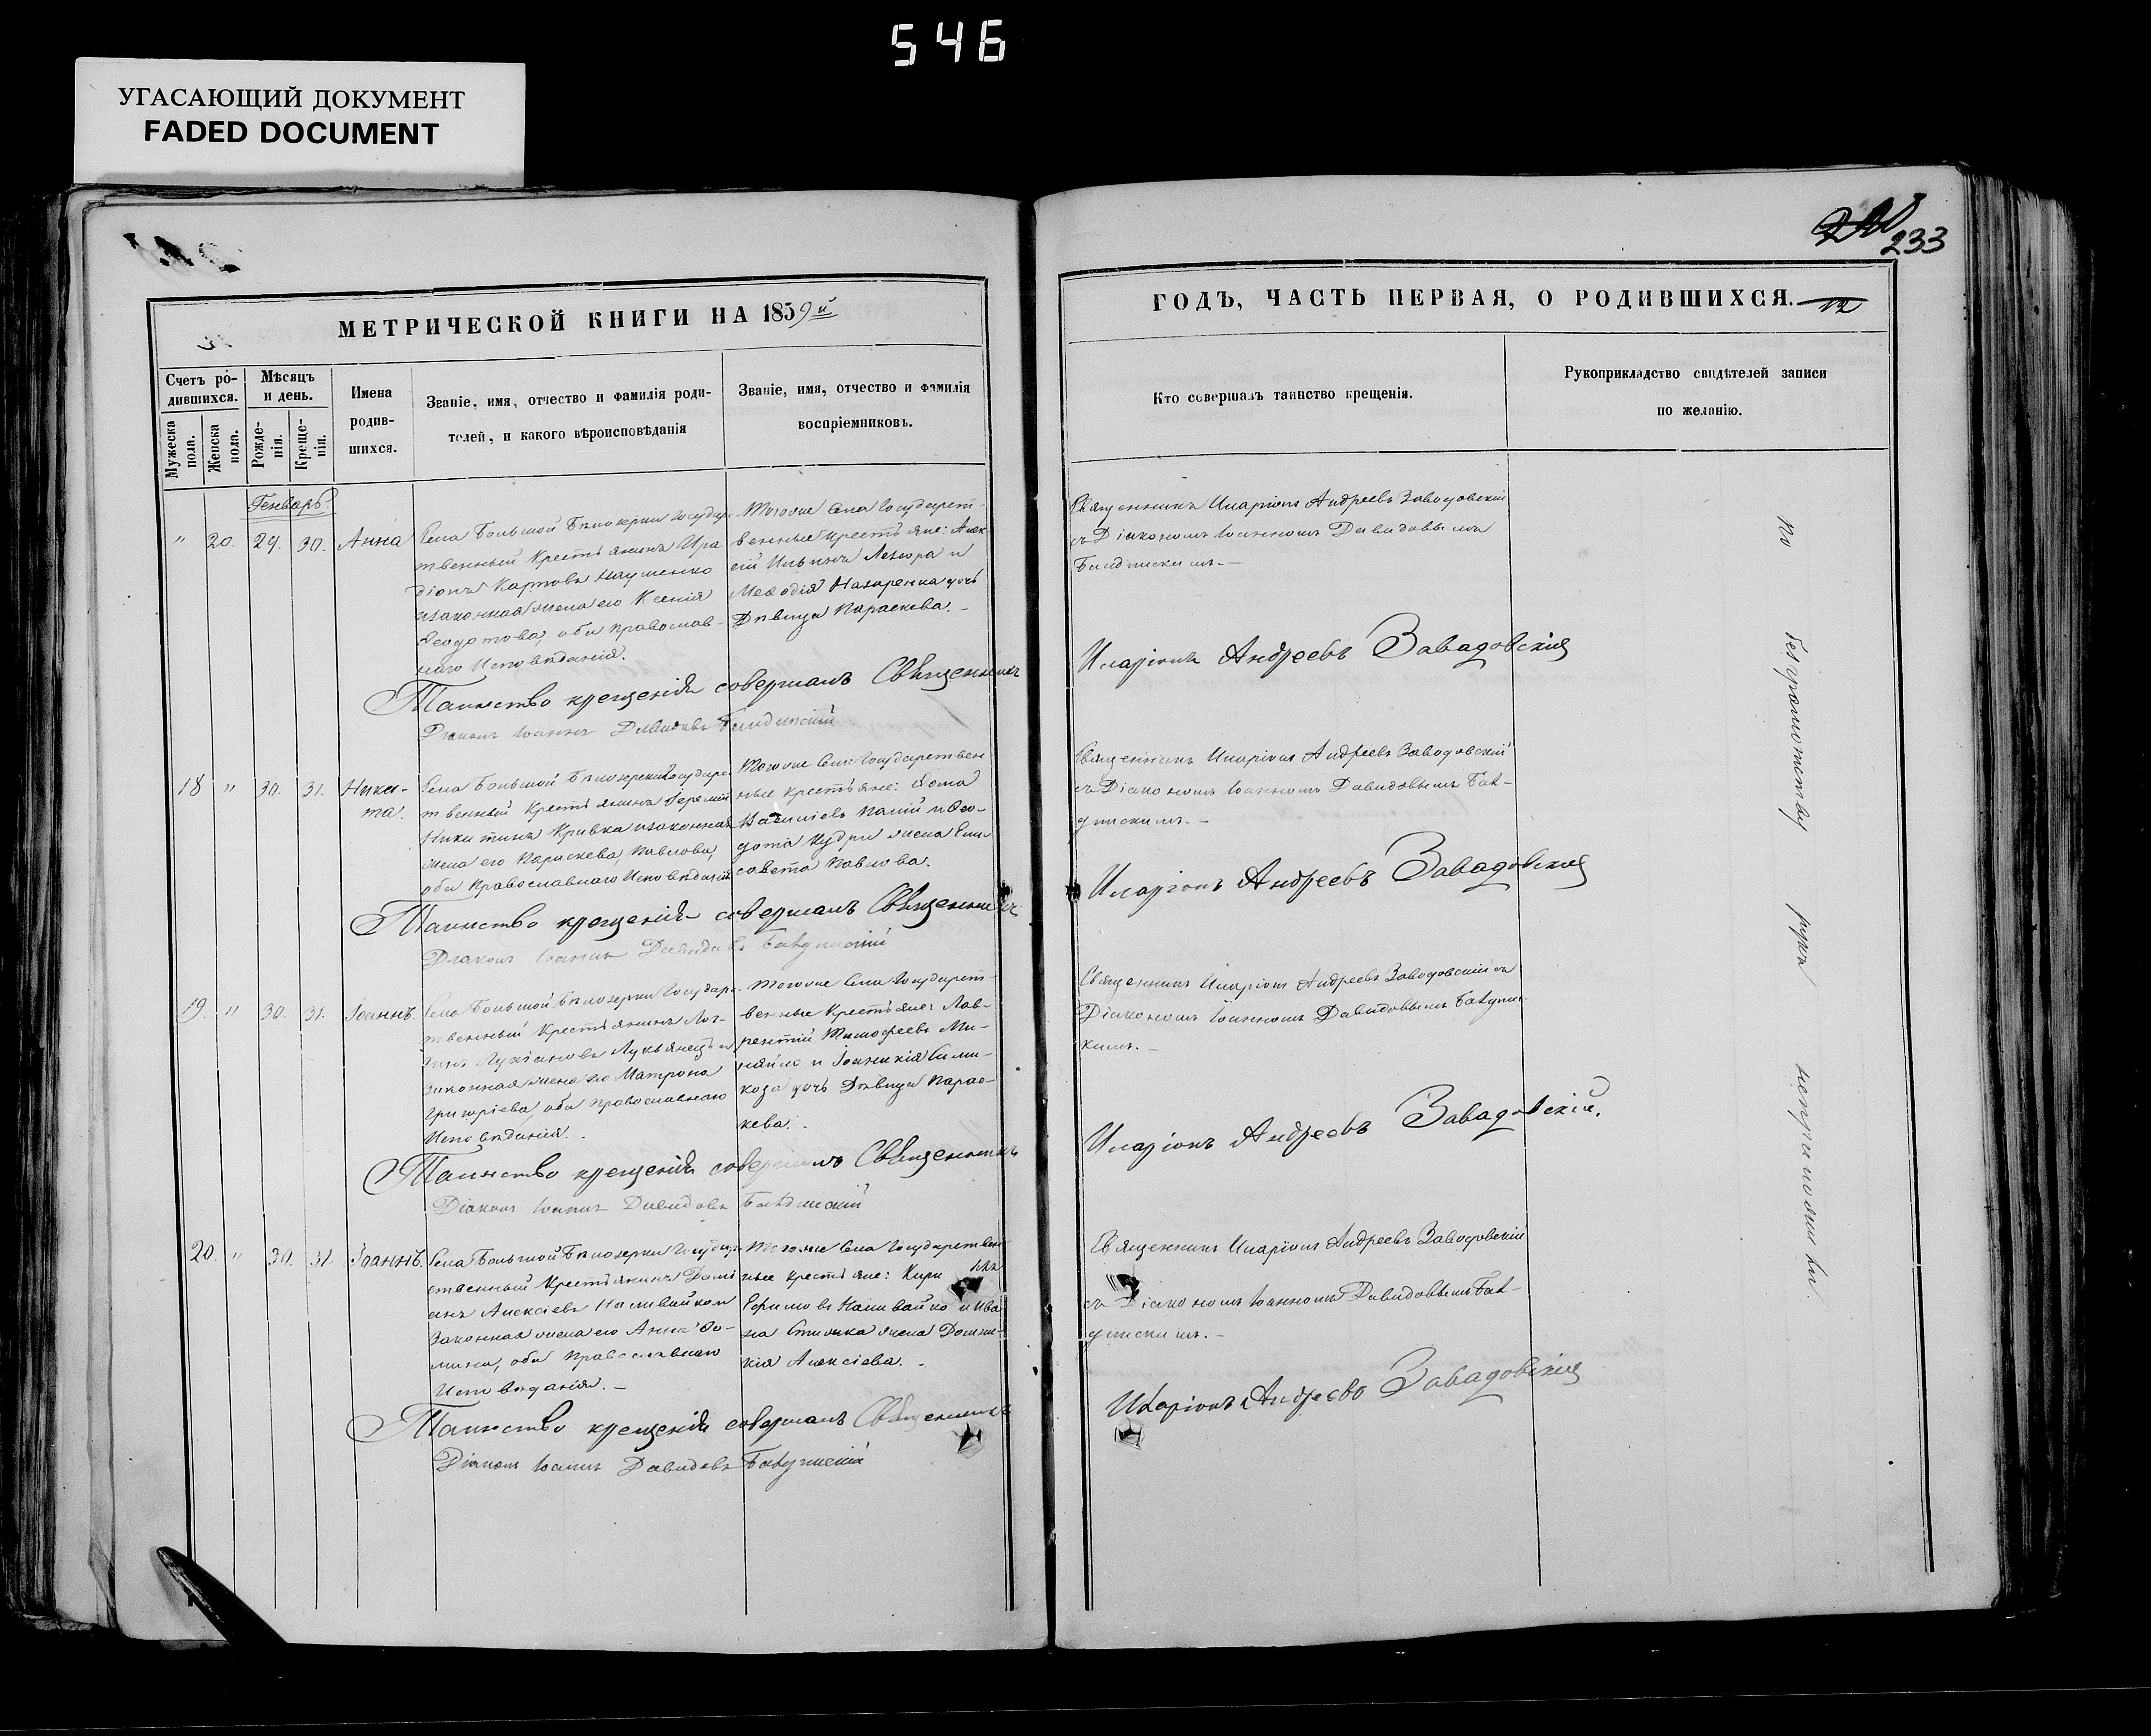 546
УГАСАЮЩИЙ ДОКУМЕНТ
FADED DOCUMENT
233
МЕТРИЧЕСКОЙ КНИГИ НА 1859й
Счетъ ро-
дившихся.
Мужеска пола.
Женска пола.
Мѣсяцъ
и день.
Рожде-
нія.
Креще-
нія.
Имена
родив-
шихся.
Званіе, имя, отчество и фамилія роди-
телей, и какого вѣроисповѣданія
Званіе, имя, отчество и фамилія
воспріемниковъ.
Генварь.
" 20. 29. 30. Анна
Села Большой Бѣлозерки Государ
ственный Крестьянинъ Ира
діонъ Карповъ Науменко
изаконная жена его Ксенія
Феодотова, оба православ-
наго Исповѣданія.
Тогоже Села Государст-
венные Крестьяне: Алек
сій Ильинъ Лехора и
Меѳодія Назаренка дочь
Дѣвица Параскева.-
Таинство крещенія совершалъ Священникъ
Діаконъ Іоаннъ Давидовъ
18 " 30. 31. Ники-
та.
Села Большой Бѣлозерки Государс
твенный Крестьянинъ Іеремій
Никитинъ Кривка изаконная
жена его Параскева Павлова,
оба Православнаго Исповѣданія
Тогоже Села Государствен
ные Крестьяне: Ѳома
Василіевъ Палій и Ѳео-
дота Кудри жена Ели
савета Павлова.
Таинство крещенія совершалъ Священникъ
Діаконъ Іоаннъ Давидовъ
19. " 30. 31. Іоаннъ.
Села Большой Бѣлозерки Государс
твенный Крестьянинъ Лог-
гинъ Лукіановъ Лукьянецъ и
законная жена его Матрона
Григоріева, оба Православнаго
Исповѣданія.
Тогоже Села Государст-
венные Крестьяне: Лав-
рентій Тимофеевъ Ми-
хайло и Іоаникія Сими-
коза дочь Дѣвица Парас-
кева.
Таинство крещенія совершалъ Священникъ
Діаконъ Іоаннъ Давидовъ
20. " 30. 31. Іоаннъ.
Села Большой Бѣлозерки Государ
ственный Крестьянинъ Дамі
анъ Алексіевъ Наливайко и
Законная жена его Анна Ѳо-
мина, оба Православнаго
Исповѣданія.-
Тогоже Села Государствен
ные Крестьяне: Кири
Ефимовъ Наливайко и Ива
на жена Домни-
кія Алексіева.
Таинство крещенія совершалъ Священникъ
Діаконъ Іоаннъ Давидовъ
ГОДЪ, ЧАСТЬ ПЕРВАЯ, О РОДИВШИХСЯ.
12
Кто совершалъ таинство крещенія.
Рукоприкладство свидѣтелей записи
по желанію.
Священникъ Иларіонъ Андреевъ Завадовскій
съ Діакономъ Іоанномъ Давидовымъ
Иларіонъ Андреевъ Завадовскій
Священникъ Иларіонъ Андреевъ Завадовскій
съ Діакономъ Іоанномъ Давидовымъ
Иларіонъ Андреевъ Завадовскій
Священникъ Иларіонъ Андреевъ Завадовскій съ
Діакономъ Іоанномъ Давидовымъ
Иларіонъ Андреевъ Завадовскій.
Священникъ Иларіонъ Андреевъ Завадовскій
съ Діакономъ Іоанномъ Давидовымъ
Иларіонъ Андреевъ Завадовскій
По безграмотству рукъ неприложили